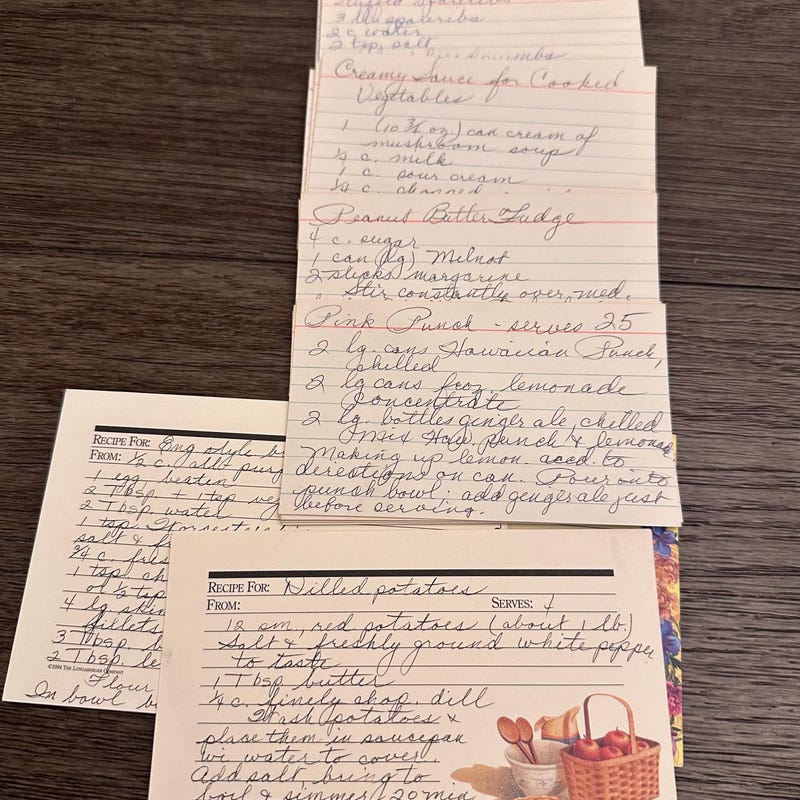 3 lb spareribs
2 c. water
2 tsp. salt
Creamy Sauce for Cooked
Vegetables
1 (10 3/4 oz.) can cream of
mushroom soup
c. milk
1 c. sour cream
1/4 c. chopped
Peanut Butter Fudge
4 c. sugar
1 can (lg) Milnot
2 sticks margarine
Stir constantly over med.
Pink Punch - serves 25
2 lg. cans Hawaiian Punch,
chilled
2 lg cans froz. lemonade
concentrate
2 lg. bottles ginger ale, chilled
Mix Haw. punch & lemonade
Making up lemon. accd. to
directions on can. Pour into
punch bowl; add ginger ale just
before serving.
RECIPE FOR: Eng style
FROM: 1/2 c. all purp
1 egg, beaten
2 Tbsp. + 1 tsp
2 Tbsp. water
1 tsp.
salt &
3/4 c.
1 tsp.
or 1/2 tsp
4 lg skin
fillets
3 Tbsp.
2 Tbsp. le
©1994 THE LONGABERGER COMPANY
Flour
In bowl
RECIPE FOR: Dilled potatoes
FROM: SERVES: 4
12 sm. red potatoes (about 1 lb.)
Salt & freshly ground white pepper
to taste
1 Tbsp butter
1/4 c. finely chop. dill
Wash potatoes &
place them in saucepan
wi water to cover.
Add salt, bring to
boil & simmer 20 min